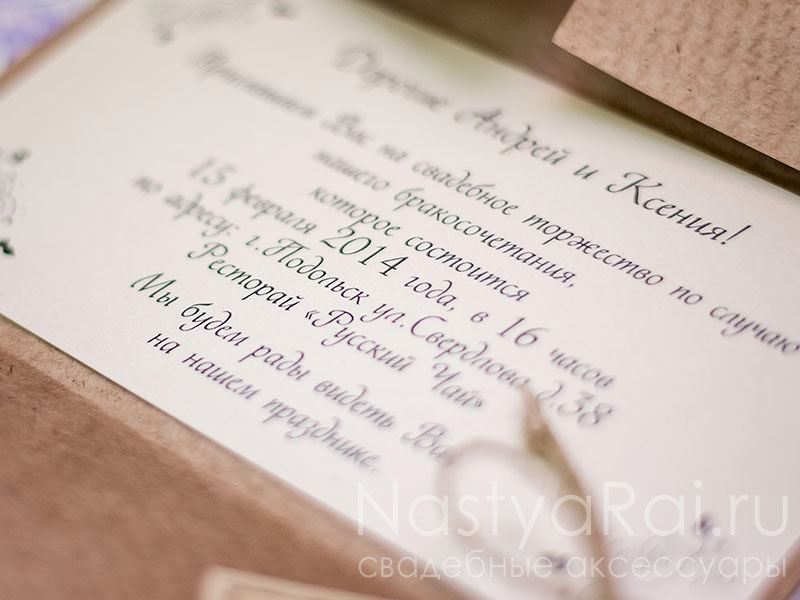 Дорогие Андрей и Ксения!
Приглашаем Вас на свадебное торжество по случаю
нашего бракосочетания,
которое состоится
15 февраля 2014 года, в 16 часов
по адресу: г.Подольск ул.Свердлова д.38
Ресторай «Русский Чай»
Мы будем рады видеть Вас
на нашем празднике.
NastyaRai.ru
свадебные аксессуары